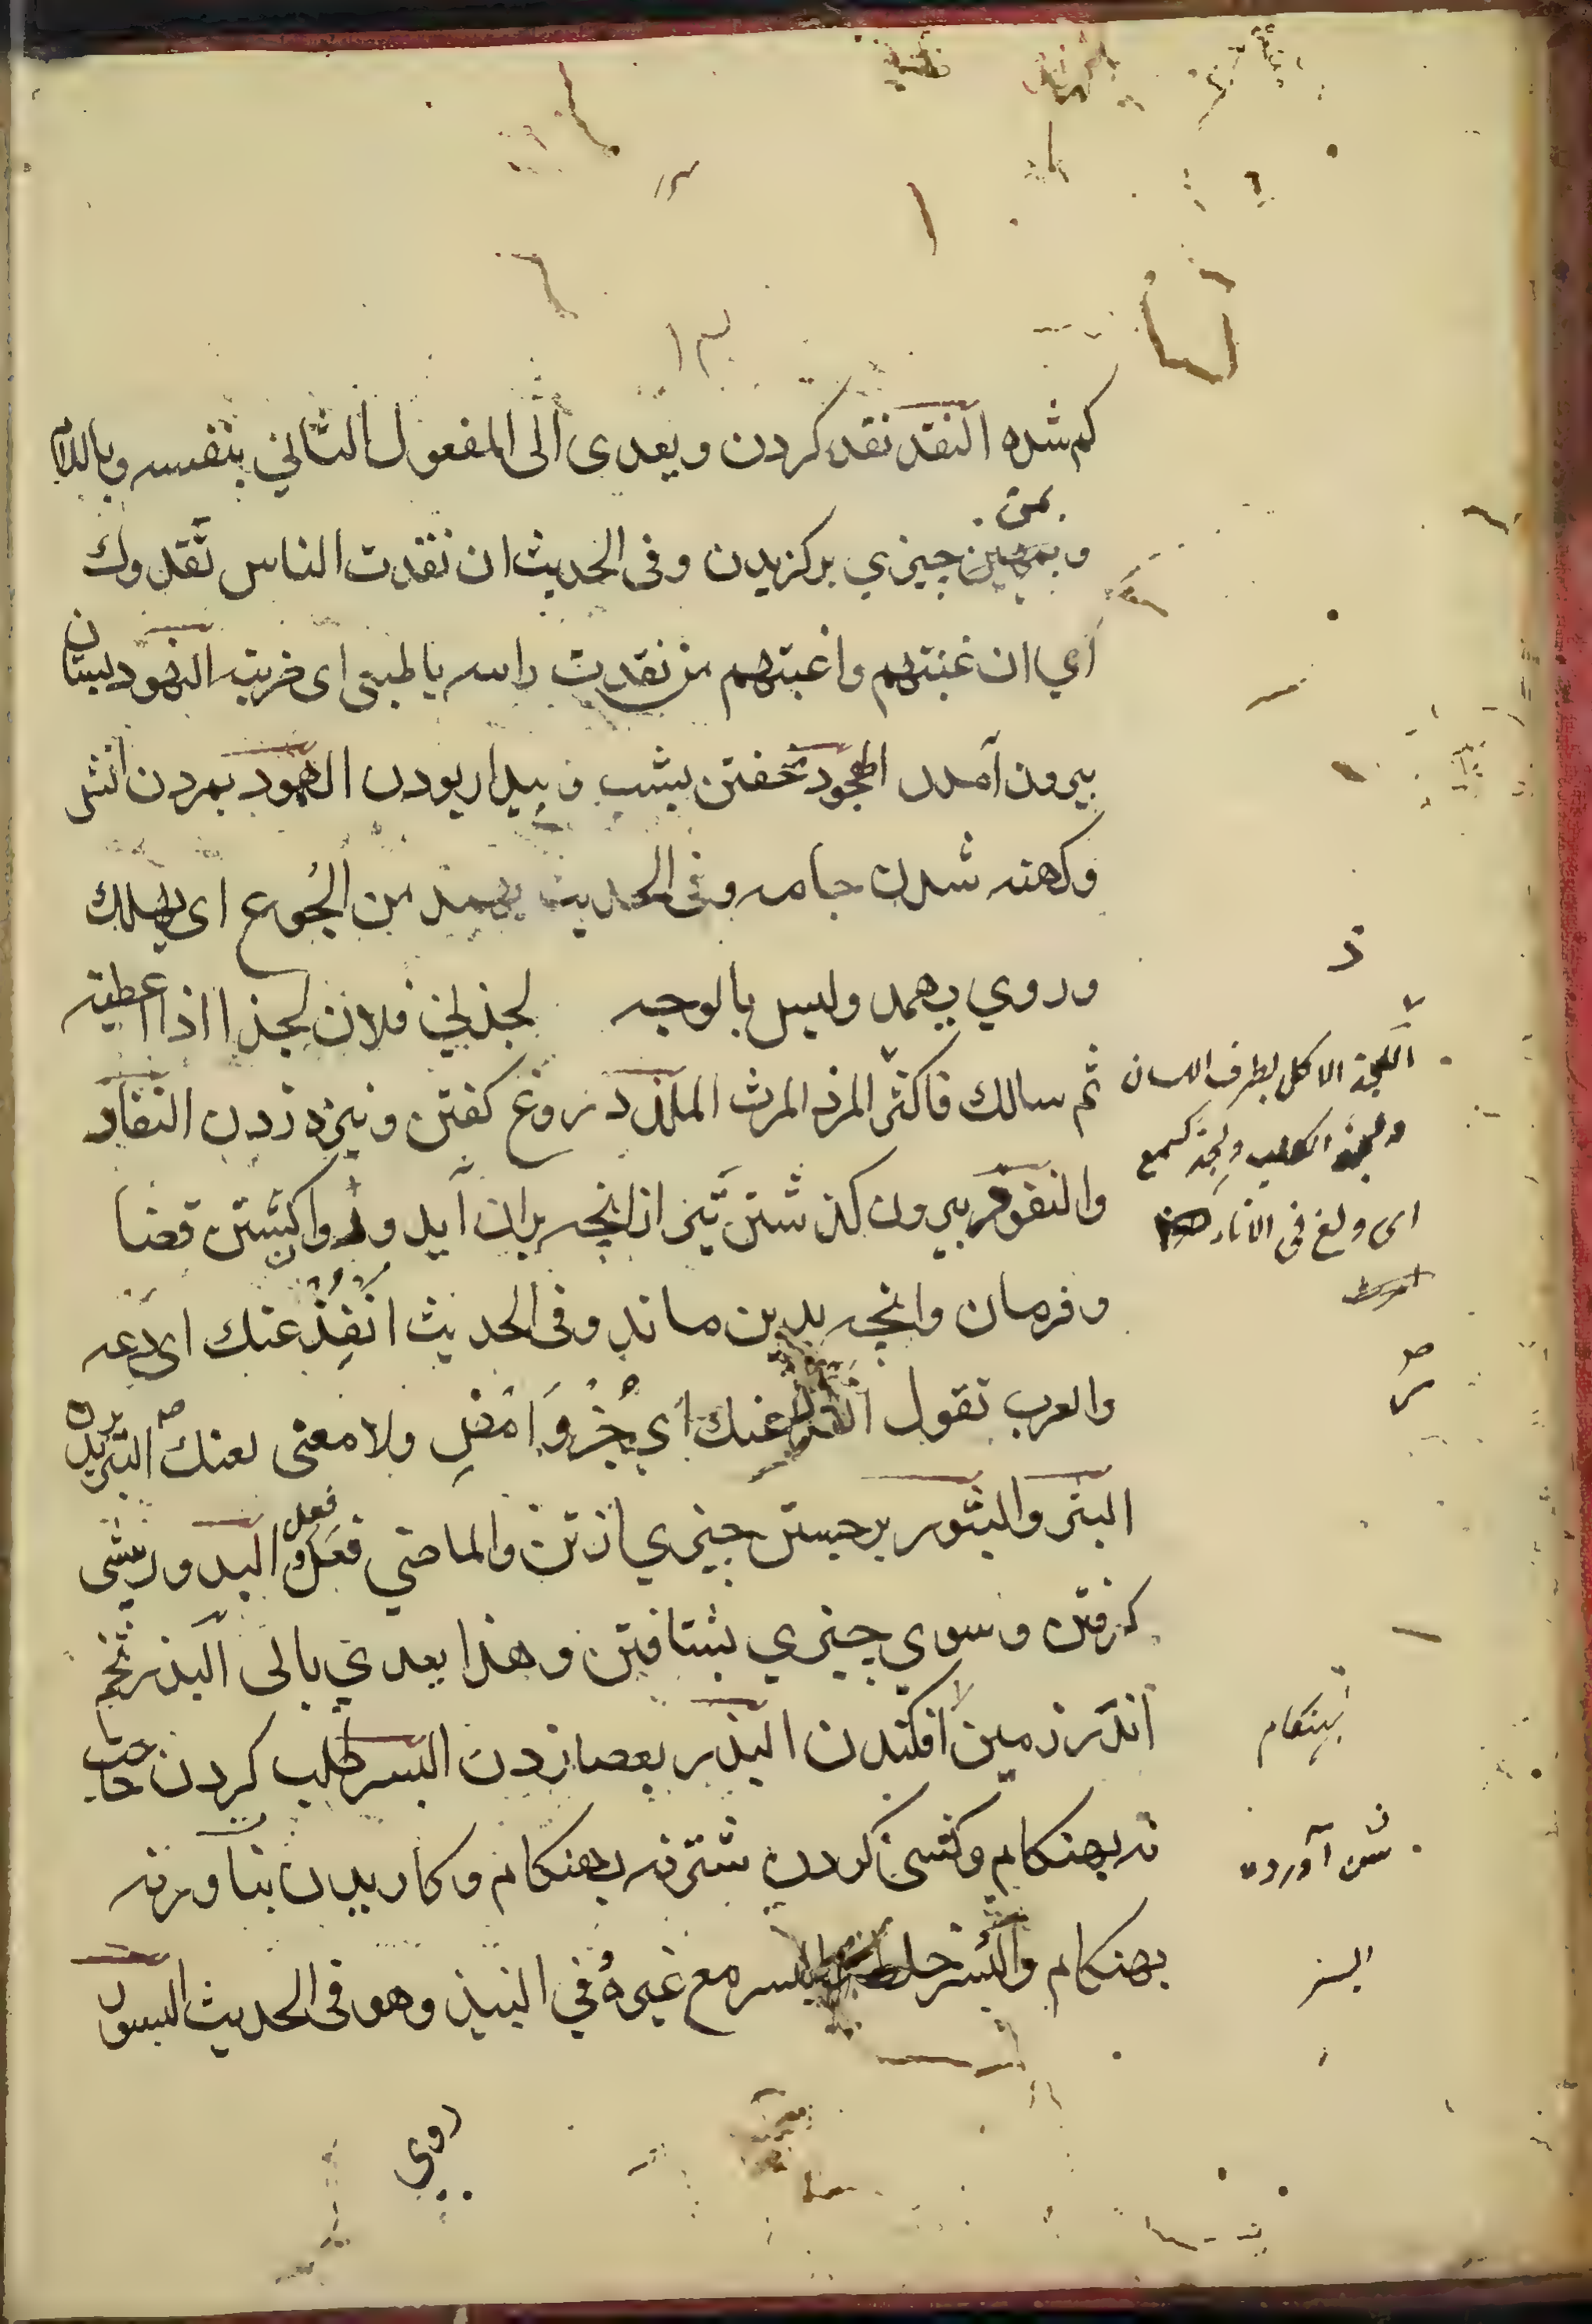 کم شده النقد نقد کردن ویعدی الی المفعول الثانی بنفسه وباللام
بهین
وبمهین جیزی برکزیدن وفی الحدیث ان نقدت الناس نقدوك
أی ان عبتهم واغتبتهم من نقدت راسه باصبعی ای ضربته النهود لبستان
بیرون آمدن الهجود بخفتن بشب و بیدار بودن الهمود بمردن اتش
وکهنه شدن جامه وفی الحدیث یهمد من الجُوع ای یهلك
وروی یهمد ولیس بالوجه لجذنی فلان لجذا اذا اعطیته
ثم سالك فاکثر المرذ المرث الملذ دروغ کفتن ونیزه زدن النفاذ
والنفوذ بیرون کذشتن تیر از انجه بران آید وروا کشتن قضا
وفرمان وانجه بدین ماند وفی الحدیث انفُذْ عنك ای دعه
والعرب تقول انفذ عنك أی جُزْ وَامْضِ ولا معنی لعنك البتر بریدن
البثر والبثور برجستن جیزی از تن والماضی فعَل وفعل البدور بیشی
کرفتن وسوی جیزی بشتافتن وهذا یعدی بالی البذر تخم
اندر زمین افکندن البزر بعصا زدن البسر طلب کردن حاجت
نه بهنکام وکشی کردن شتر نه بهنکام وکار بدن بتاور نه
بهنکام والبُسْر خلط البسر مع غیرهُ فی النبیذ وهو فی الحدیث البسور
روی
ذ
اللجذ الاکل بطرف اللسان
ولجذ الکلب ولجذ کسمع
ای ولغ فی الاناء
ر
بهنکام
شن آوردن
البسر